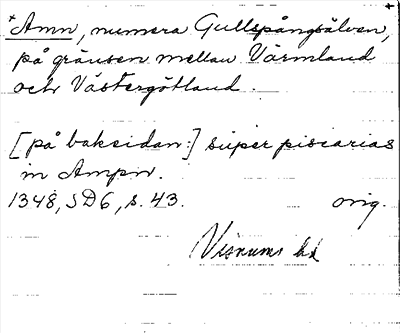 *Amn, numera Gullspångsälven,
på gränsen mellan Värmland
och Västergötland.
[på baksidan:] super piscarias
in Ampn.
1348, SD6, s. 43. orig.
Visnums hd